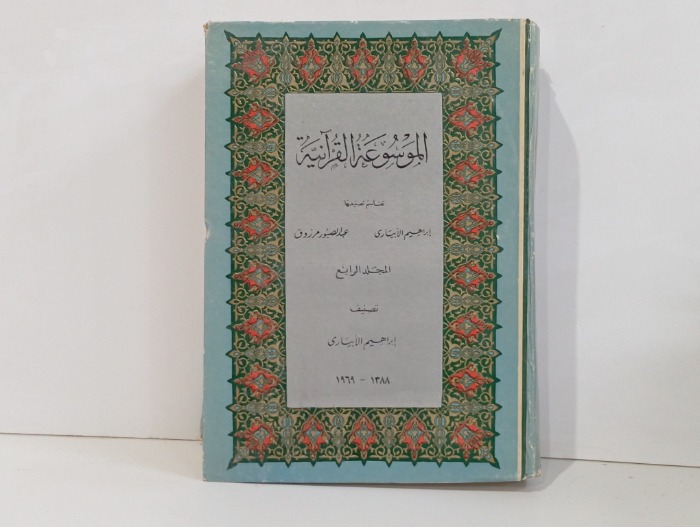 الموسوعة القرآنية
تقاسم تصنيفها
إبراهيم الأبيارى عبد الصبور مرزوق
المجلد الرابع
تصنيف
إبراهيم الأبيارى
١٣٨٨ - ١٩٦٩